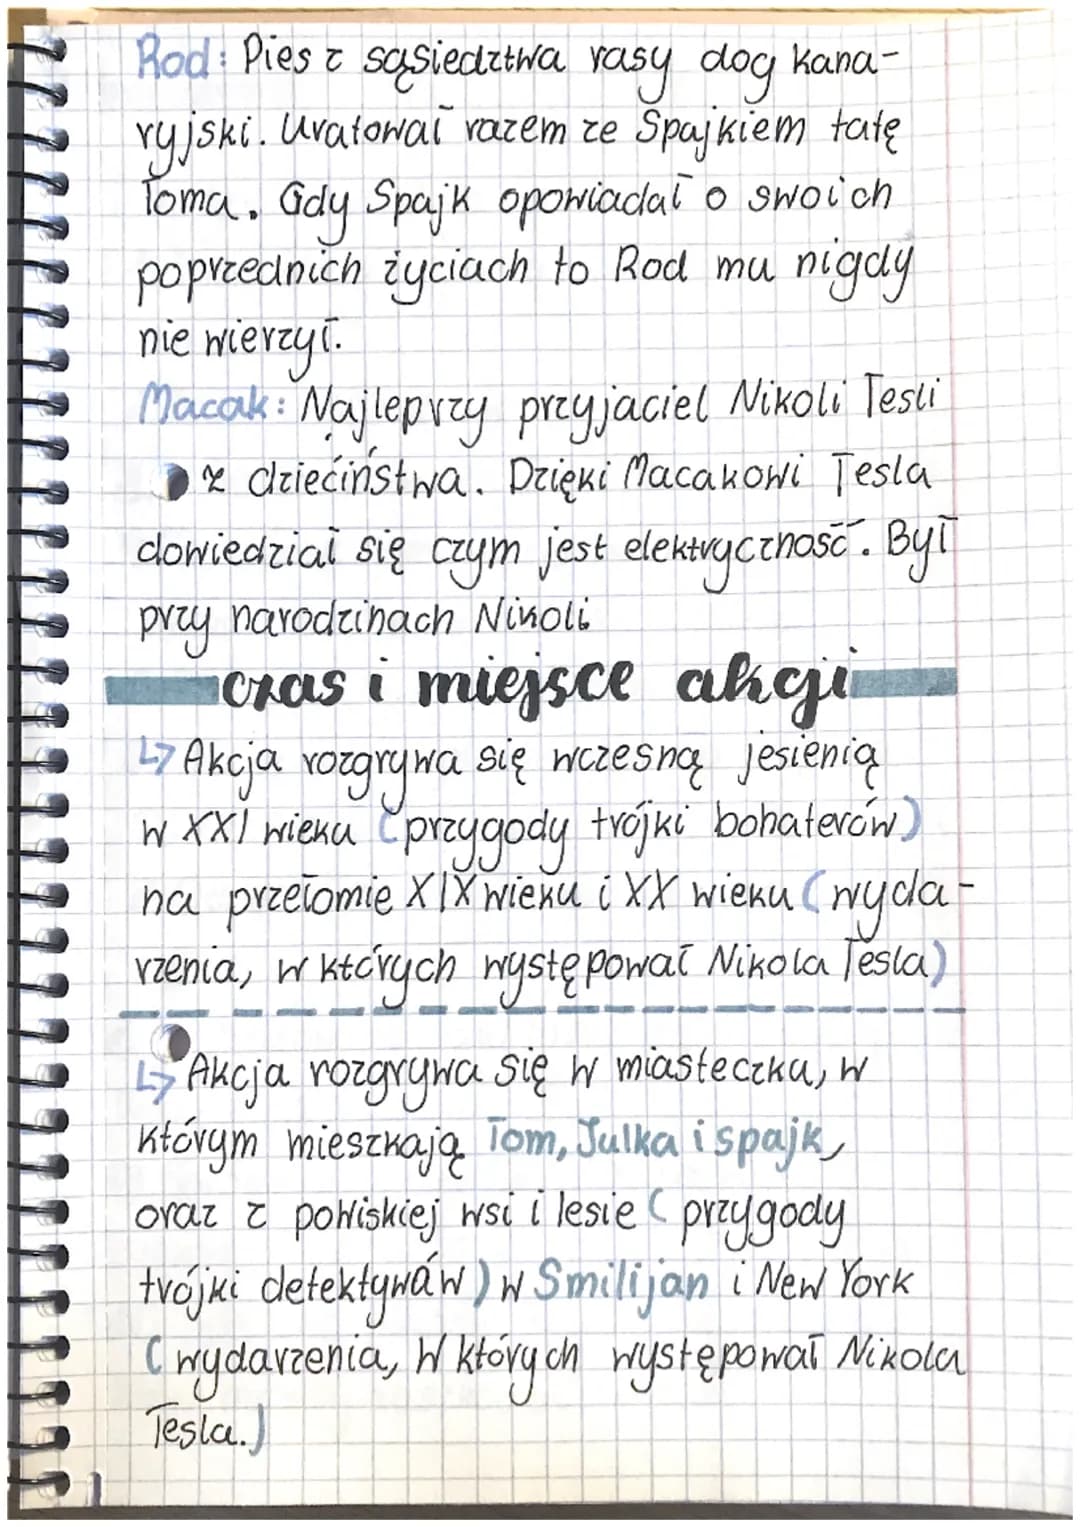 Rod: Pies z sąsiedztwa rasy dog kana-
ryjski. Uratował razem ze Spajkiem tatę
Toma. Gdy Spajk opowiadał o swoich
poprzednich życiach to Rod mu nigdy
nie wierzył.
Macak: Najleprzy przyjaciel Nikoli Tesli
z dziećiństwa. Dzięki Macakowi Tesla
dowiedział się czym jest elektryczność. Był
przy narodzinach Nikoli
czas i miejsce akcji
↳ Akcja rozgrywa się wczesną jesienią
w XXI wieku (przygody trójki bohaterów)
na przełomie XIX wieku i XX wieku (wyda-
rzenia, w których występował Nikola Tesla)
↳ Akcja rozgrywa się w miasteczku, w
którym mieszkają Tom, Julka i spajk,
oraz z powiskiej wsi i lesie (przygody
trójki detektywów) w Smilijan i New York
(wydarzenia, w których występował Nikola
Tesla.)